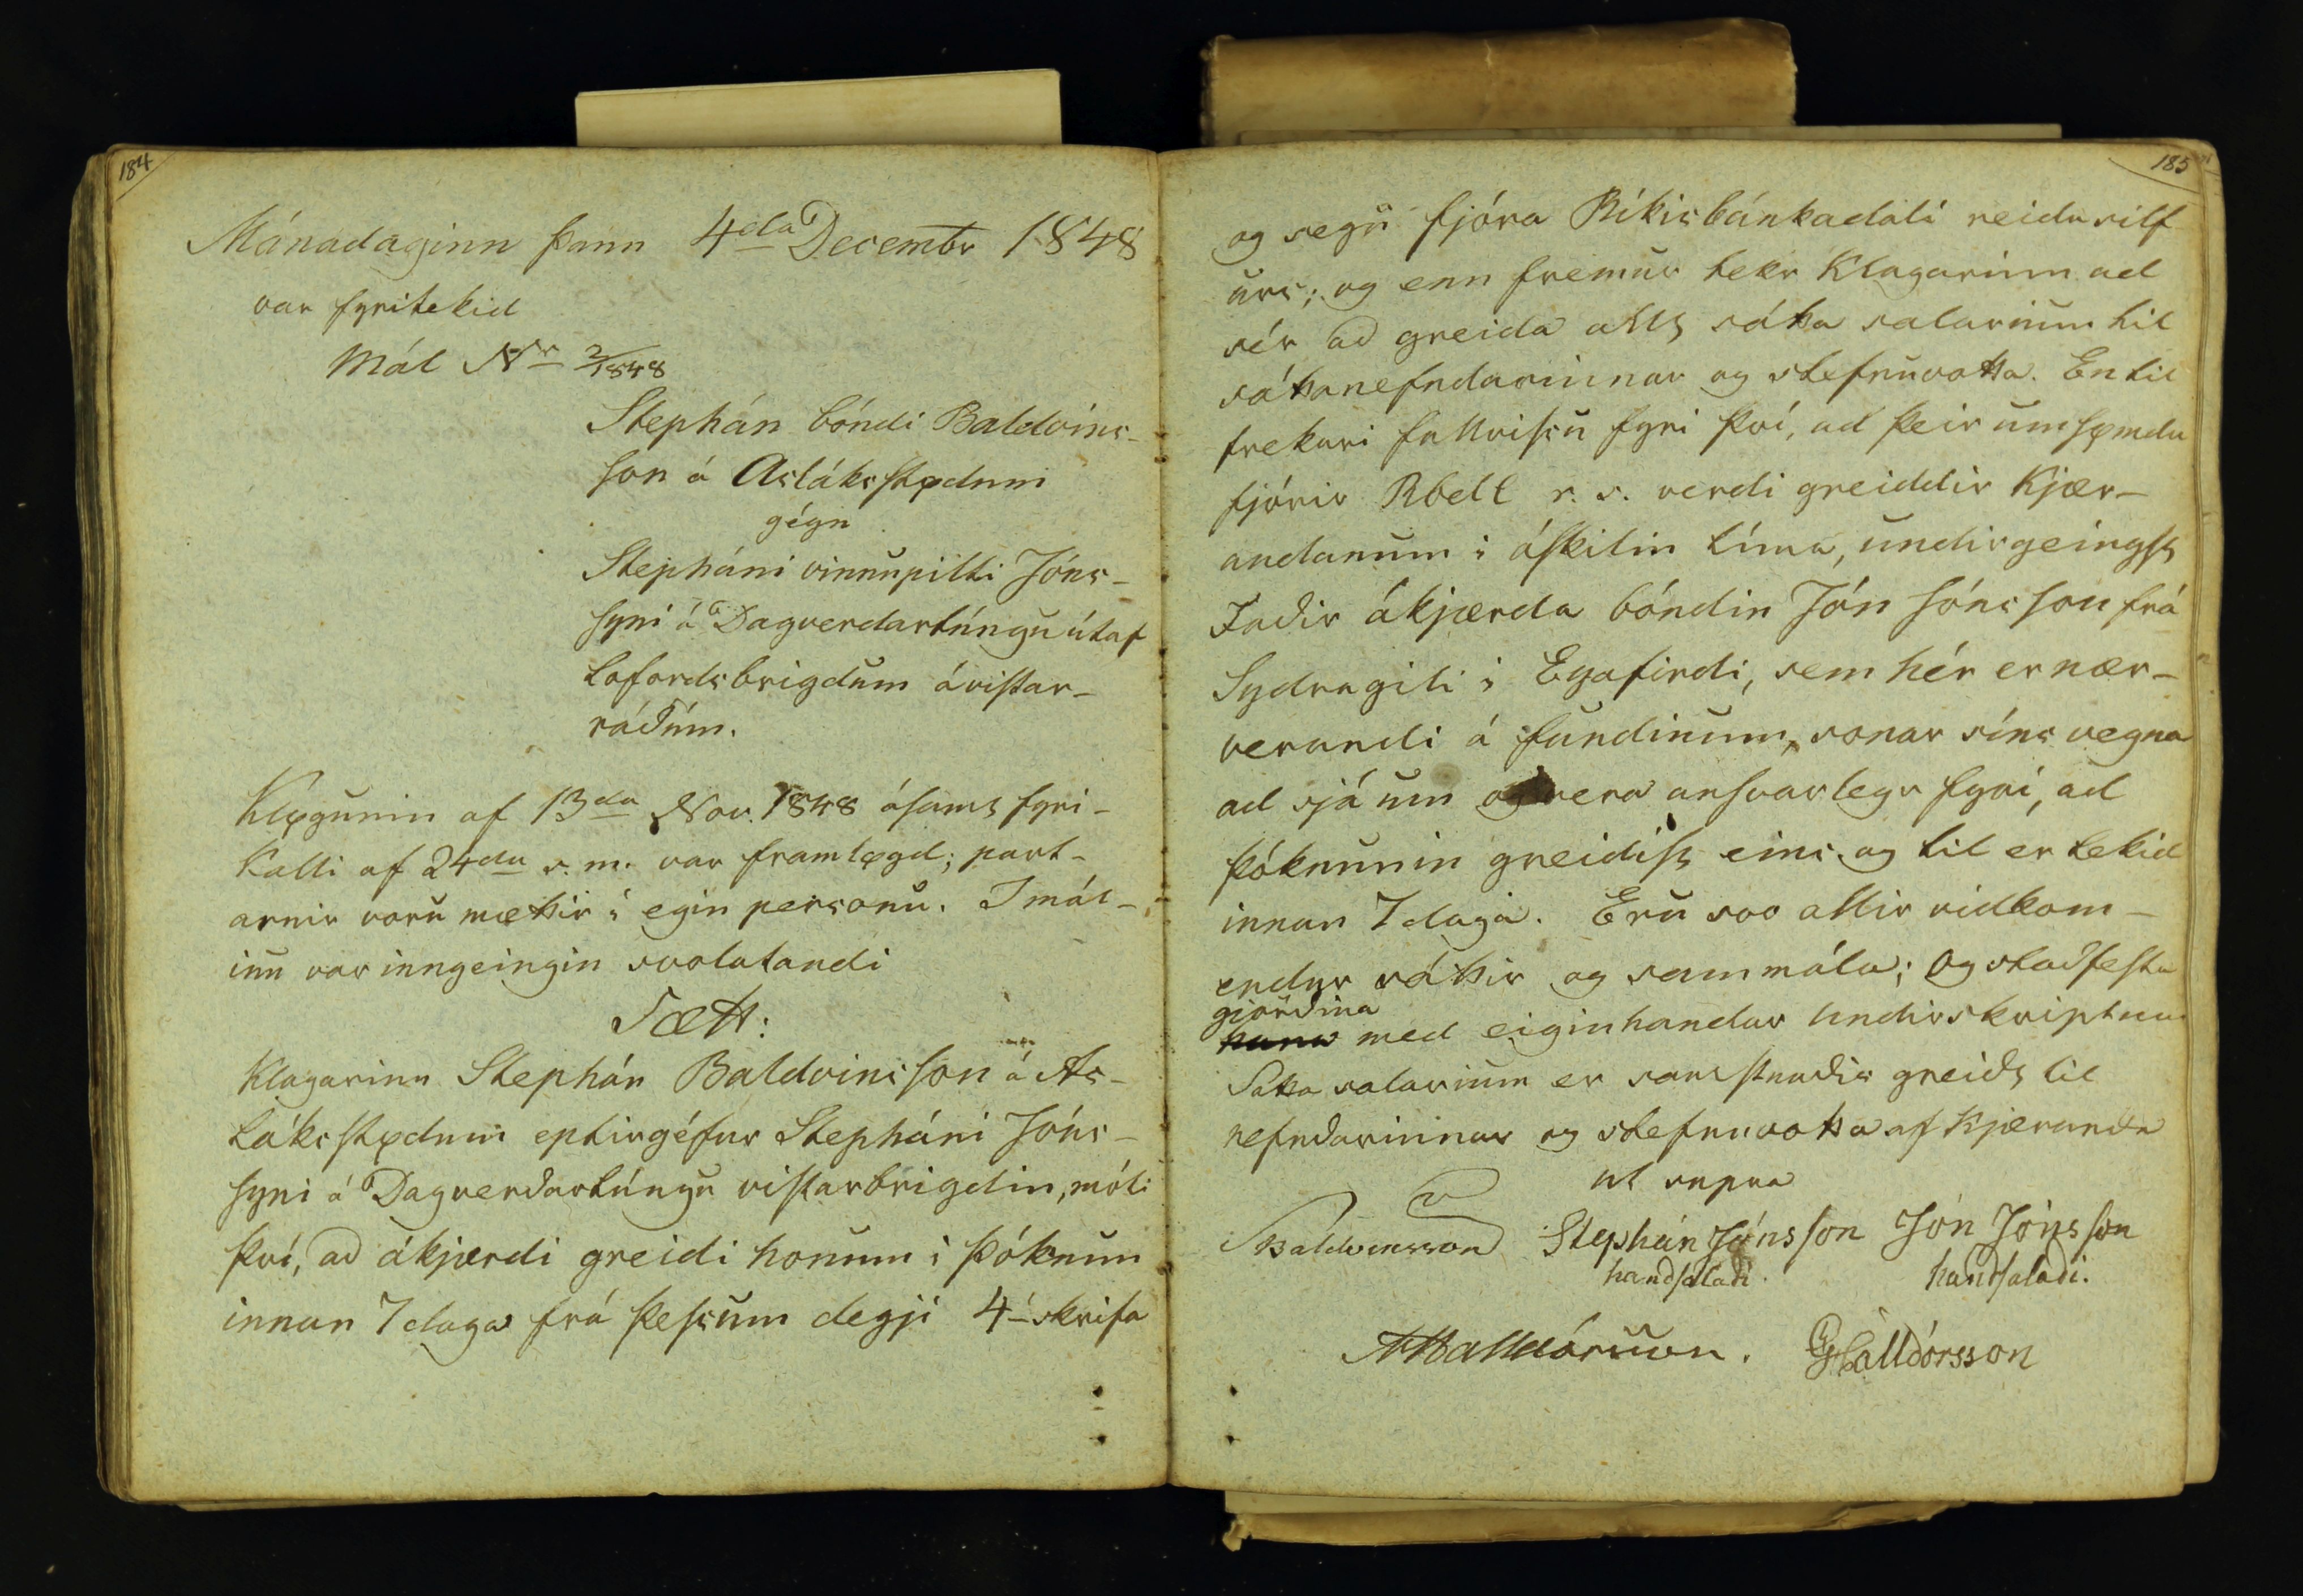 184
Mánadaginn þann 4da Decembr 1848
var fyritekid
Mál Nr 2/1848
Stephán bóndi Baldvins-
son á Aslákstødum
gégn
Stepháni vinnupilti Jóns-
syni á Dagverdartúngu útaf
Lofordsbrigdum á vistar-
ráðum.
Kløgunin af 13da Nov. 1848 ásamt fyri-
Kalli af 24da s. m. var framløgd; part-
arnir voru mættir i egin personu. I mál-
inu var inngeingin svolatandi
Sætt:
Klagarinn Stephán Baldvinsson á As-
láksstødum eptirgéfur Stepháni Jóns-
syni á Dagverðartúngu vistarbrigdin, móti
því, að ákjærdi greidi honum i þóknun
innan 7 daga frá þessum degji 4 skrifa
185
og segu fjóra Ríkisbánkadali reidu silf
urs; og enn fremur tekr Klagarinn ad
sér að greida allt sátta salarium til
sáttanefndarinnar og stefnuvotta. En til
frekari fullvissu fyri því, ad þeir umsømdu
fjórir Rbdl r. s. verdi greiddir Kjær-
andanum i áskilin tíma, undirgeingst
Faðir ákjærda bóndin Jón Jónsson frá
Sydragili i Eyafirdi, sem hér er nær-
verandi á fundinum, sonar síns vegna
ad sjá um og vera ansvarlegr fyri, ad
þóknunin greidist eins og til er tekid
innan 7 daga. Eru svo allir vidkom-
endur sáttir og sammála; og stadfesta
gjörðina
hana med eiginhandar Undirskriptum
Satta salarium er samstundis greidt til
nefnðarinnar og stefnuvotta af Kjæranda
ut supra
SBaldvinsson Stephán Jónsson Jón Jónsson
handsaladi. handsaladi.
AHalldórsson. GHalldórsson